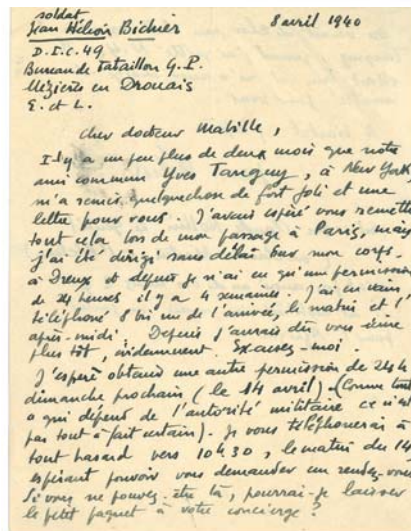 soldat
Jean Hélion Bichier
8 avril 1940
D.I.C. 49
Bureau de bataillon G.P.
Mézières en Drouais
E. et L.
cher docteur Mabille,
Il y a un peu plus de deux mois que notre
ami commun Yves Tanguy, à New York
m'a remis quelquechose de fort joli et une
lettre pour vous. J'avais espéré vous remettre
tout cela lors de mon passage à Paris, mais
j'ai été dirigé sans délai sur mon corps
à Dreux et depuis je n'ai eu qu'un permission
de 24 heures il y a 4 semaines. J'ai en vain
téléphoné 8 bis rue de l'arrivée, le matin et l'
après-midi. Depuis j'aurais dû vous écrire
plus tôt, évidemment. Excusez-moi.
J'espère obtenir une autre permission de 24 h
dimanche prochain (le 14 avril). (Comme tout
ce qui dépend de l'autorité militaire ce n'est
pas tout à fait certain). Je vous téléphonerai à
tout hasard vers 10h30, le matin du 14
espérant pouvoir vous demander un rendez-vous
Si vous ne pouvez être là, pourrai-je laisser
le petit paquet à votre concierge ?